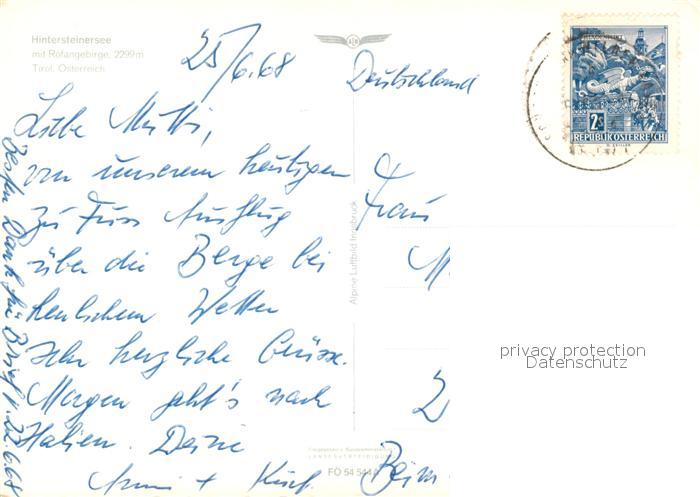 Hintersteinersee
mit Rofangebirge, 2299m
Tirol, Österreich
25/6.68
Deutschland
Liebe Mutti,
von unserem heutigen
zu Fuss Ausflug
über die Berge bei
herrlichem Wetter
sehr herzliche Grüsse.
Morgen geht's nach
Italien. Deine
+ Kurt
Besten Dank für Brief v. 22.6.68
Frau
M
Beim
Alpine Luftbild Innsbruck
FÖ 54 544
2S
REPUBLIK ÖSTERREICH
privacy protection
Datenschutz